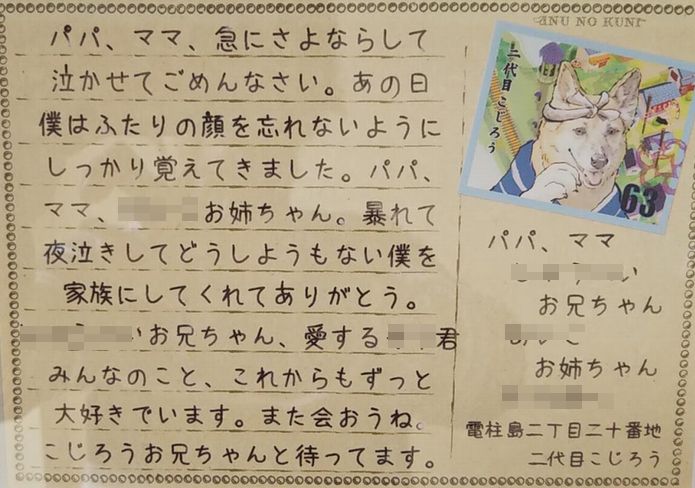 パパ、ママ、急にさよならして
泣かせてごめんなさい。あの日
僕はふたりの顔を忘れないように
しっかり覚えてきました。パパ、
ママ、お姉ちゃん。暴れて
夜泣きしてどうしようもない僕を
家族にしてくれてありがとう。
お兄ちゃん、愛する君
みんなのこと、これからもずっと
大好きでいます。また会おうね。
こじろうお兄ちゃんと待ってます。
INU NO KUNI
二代目 こじろう
63
パパ、ママ
お兄ちゃん
お姉ちゃん
電柱島二丁目二十番地
二代目こじろう